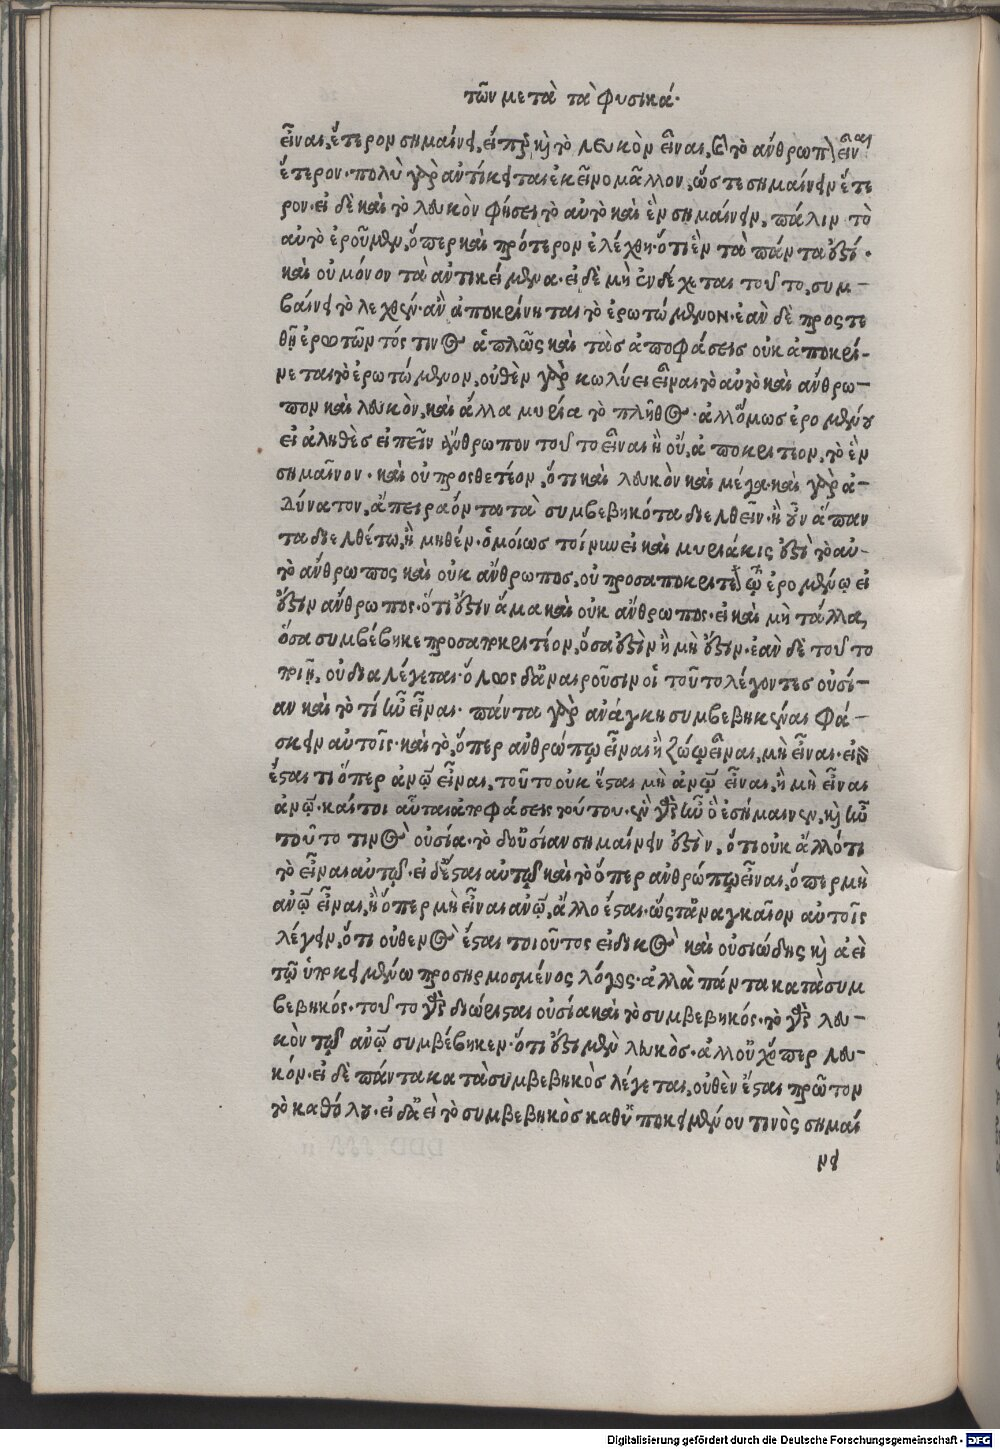 τῶν μετὰ τὰ φυσικά.
εἶναι, ἕτερον σημαίνει, εἴπερ καὶ τὸ λευκὸν εἶναι, καὶ τὸ ἀνθρώπῳ εἶναι
ἕτερον. πολὺ γὰρ ἀντίκειται ἐκεῖνο μᾶλλον, ὥστε σημαίνειν ἕτε
ρον. εἰ δὲ καὶ τὸ λευκὸν φήσει τὸ αὐτὸ καὶ ἓν σημαίνειν, πάλιν τὸ
αὐτὸ ἐροῦμεν, ὅπερ καὶ πρότερον ἐλέχθη. ὅτι ἓν τὰ πάντα ἐστί.
καὶ οὐ μόνον τὰ ἀντικείμενα. εἰ δὲ μὴ ἐνδέχεται τοῦτο, συμ-
βαίνει τὸ λεχθέν. ἂν ἀποκρίνηται τὸ ἐρωτώμενον. ἐὰν δὲ προστε
θῇ ἐρωτῶντός τινος ἁπλῶς καὶ τὰς ἀποφάσεις οὐκ ἀποκρί-
νεται τὸ ἐρωτώμενον, οὐθὲν γὰρ κωλύει εἶναι τὸ αὐτὸ καὶ ἄνθρω-
πον καὶ λευκὸν, καὶ ἄλλα μυρία τὸ πλῆθος. ἀλλ' ὅμως ἐρομένου
εἰ ἀληθὲς εἰπεῖν ἄνθρωπον τοῦτο εἶναι ἢ οὔ, ἀποκριτέον, τὸ ἓν
σημαῖνον. καὶ οὐ προσθετέον, ὅτι καὶ λευκὸν καὶ μέγα. καὶ γὰρ ἀ-
δύνατον, ἄπειρα ὄντα τὰ συμβεβηκότα διελθεῖν. ἢ οὖν ἅπαν
τα διελθέτω, ἢ μηθέν. ὁμοίως τοίνυν εἰ καὶ μυριάκις ἐστὶ τὸ αὐ-
τὸ ἄνθρωπος καὶ οὐκ ἄνθρωπος, οὐ προσαποκριτέον τῷ ἐρομένῳ εἰ
ἔστιν ἄνθρωπος. ὅτι ἔστιν ἅμα καὶ οὐκ ἄνθρωπος. εἰ καὶ μὴ τἄλλα,
ὅσα συμβέβηκε προσαποκριτέον, ὅσα ἐστὶν ἢ μὴ ἔστιν. ἐὰν δὲ τοῦτο
ποιῇ, οὐ διαλέγεται. ὅλως δ' ἀναιροῦσιν οἱ τοῦτο λέγοντες οὐσί-
αν καὶ τὸ τί ἦν εἶναι. πάντα γὰρ ἀνάγκη συμβεβηκέναι φά-
σκειν αὐτοῖς. καὶ τὸ, ὅπερ ἀνθρώπῳ εἶναι ἢ ζώῳ εἶναι, μὴ εἶναι. εἰ γὰρ
ἔσται τι ὅπερ ἀνῳ εἶναι, τοῦτο οὐκ ἔσται μὴ ἀνῳ εἶναι, ἢ μὴ εἶναι
ἀνῳ. καίτοι αὗται ἀποφάσεις τούτου. ἓν γὰρ ἦν ὃ ἐσήμαινεν, καὶ ἦν
τοῦτο τινὸς οὐσία. τὸ δ' οὐσίαν σημαίνειν ἐστὶν, ὅτι οὐκ ἄλλό τι
τὸ εἶναι αὐτῷ. εἰ δ' ἔσται αὐτῷ καὶ τὸ ὅπερ ἀνθρώπῳ εἶναι, ὅπερ μὴ
ἀνῳ εἶναι, ἢ ὅπερ μὴ εἶναι ἀνῳ, ἄλλο ἔσται. ὥστ' ἀναγκαῖον αὐτοῖς
λέγειν, ὅτι οὐθενὸς ἔσται τοιοῦτος εἰδικὸς καὶ οὐσιώδης καὶ ἀεὶ
τῷ ὑποκειμένῳ προσηρμοσμένος λόγος. ἀλλὰ πάντα κατὰ συμ
βεβηκός. τούτο γὰρ διώρισται οὐσία καὶ τὸ συμβεβηκός. τὸ γὰρ λευ-
κὸν τῷ ἀνῳ συμβέβηκεν. ὅτι ἐστὶ μὲν λευκὸς. ἀλλ' οὐχ ὅπερ λευ-
κόν. εἰ δὲ πάντα κατὰ συμβεβηκὸς λέγεται, οὐθὲν ἔσται πρῶτον
τὸ καθόλου. εἰ δ' ἀεὶ τὸ συμβεβηκὸς καθ' ὑποκειμένου τινὸς σημαί
νει
Digitalisierung gefördert durch die Deutsche Forschungsgemeinschaft - DFG